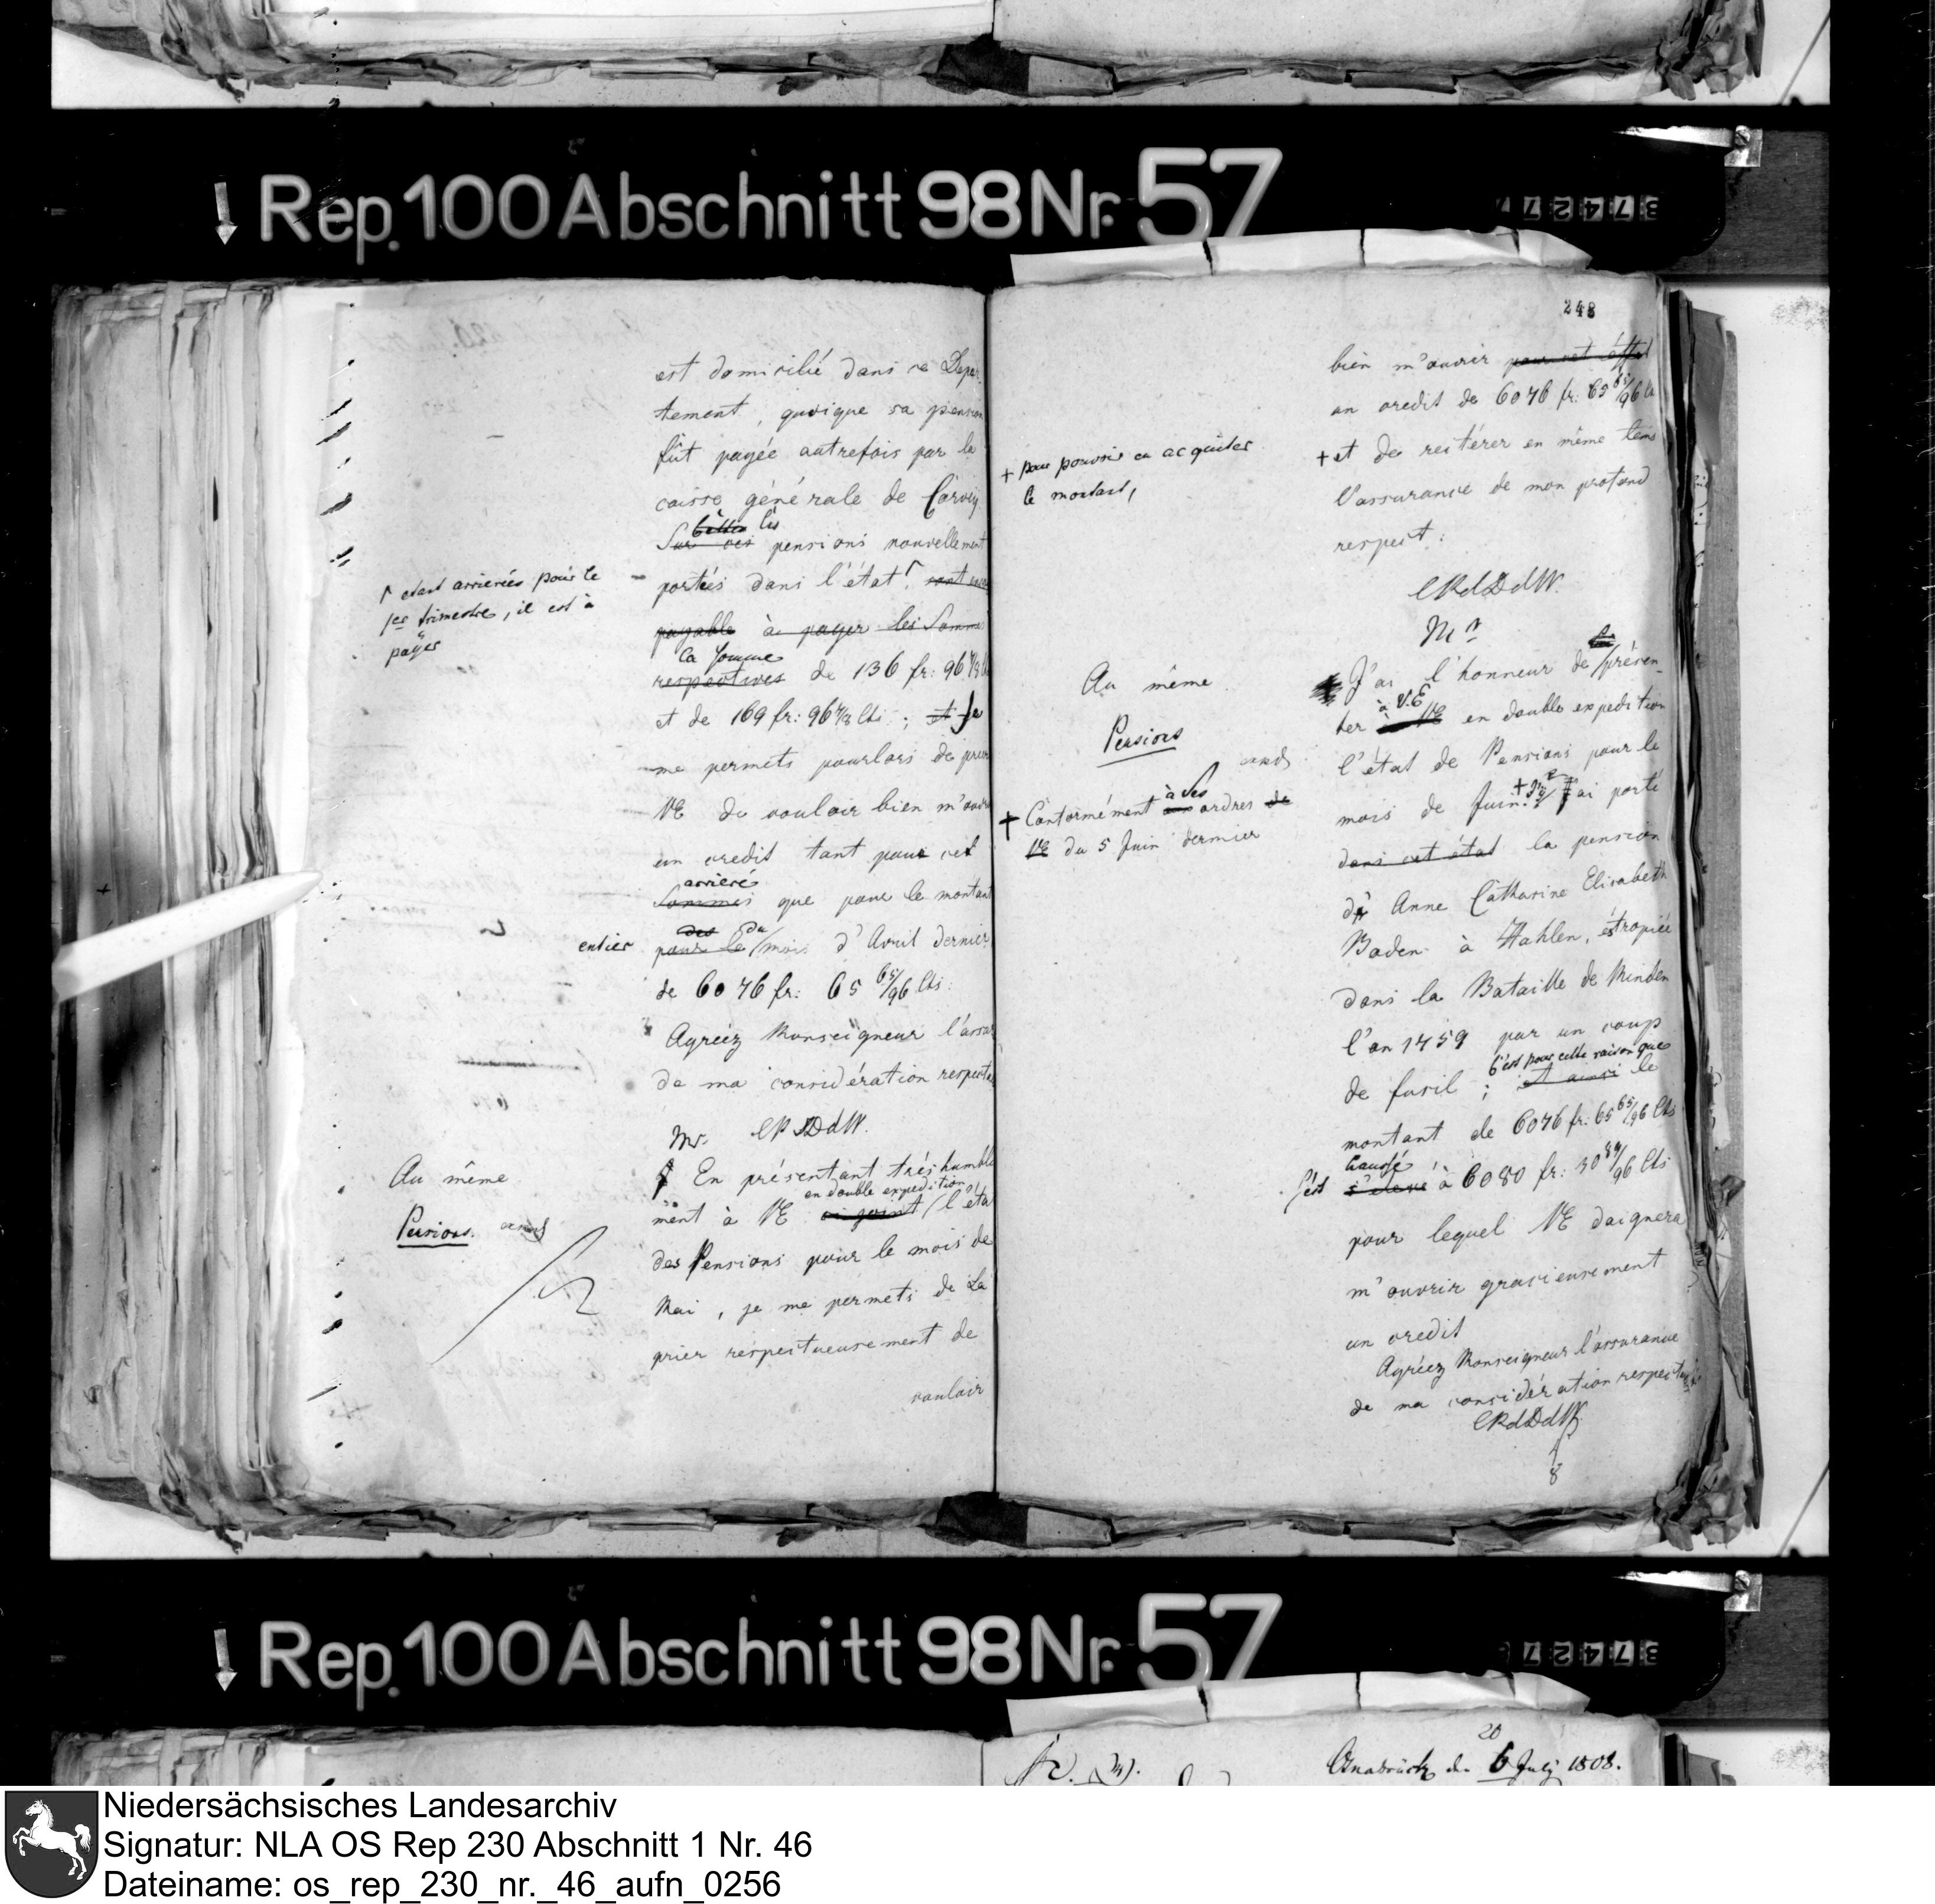 Rep. 100 Abschnitt 98 Nr. 57
37427
est domicilié dans ce Depar-
tement, quoique sa pension
fût payée autrefois par la
caisse générale de Corvey
Sur ces les pensions nouvellement
portées dans l'état sont
↾ etant arrierées pour le
1er trimestre, il est à
payer
payable à payer les Somme
la somme
respectives de 136 fr: 96
et de 169 fr: 96 7/8 Cts; et je
me permets pourlors de prier
VE de vouloir bien m'ouvrir
un credit tant pour cet
arrieré
Sommes que pour le montant
des du
entier pour le mois d'Avril dernier
de 6076 fr: 65 65/96 Cts:
Agréez Monseigneur l'assur
de ma considération respect
CRdDdW.
Au même
Mr.
En présentant très humble
en double expedition
ment à VE ci joint l'état
Pensions.
des Pensions pour le mois de
Mai, je me permets de La
prier respectueusement de
vouloir
248
bien m'ouvrir pour cet éffet
un credit de 6076 fr: 65 65/96 Cts
+ pour pouvoir en acquiter
le montant,
+ et de reitérer en même tems
l'assurance de mon profond
respect:
CRdDdW.
Mr
Au même
Pensions
J'ai l'honneur de présen-
à V.E
ter à VE en double expedition
l'état de Pensions pour le
mois de Juin. + J'ai porté
+ Conformément à Ses ordres de
VE du 5 Juin dernier
dans cet état la pension
de Anne Catharine Elisabeth
Baden à Hahlen, éstropiée
dans la Bataille de Minden
l'an 1759 par un coup
c'est pour cette raison que
de fusil; et ainsi le
montant de 6076 fr: 65 65/96 Cts
haussé
s'est s'eleve à 6080 fr: 30 89/96 Cts
pour lequel VE daignera
m'ouvrir gracieusement
un credit
Agréez Monseigneur l'assurance
de ma considération respectueuse
CRdDdW.
8
Rep. 100 Abschnitt 98 Nr. 57
37427
20
Osnabrück den 6 July 1808.
Niedersächsisches Landesarchiv
Signatur: NLA OS Rep 230 Abschnitt 1 Nr. 46
Dateiname: os_rep_230_nr._46_aufn_0256